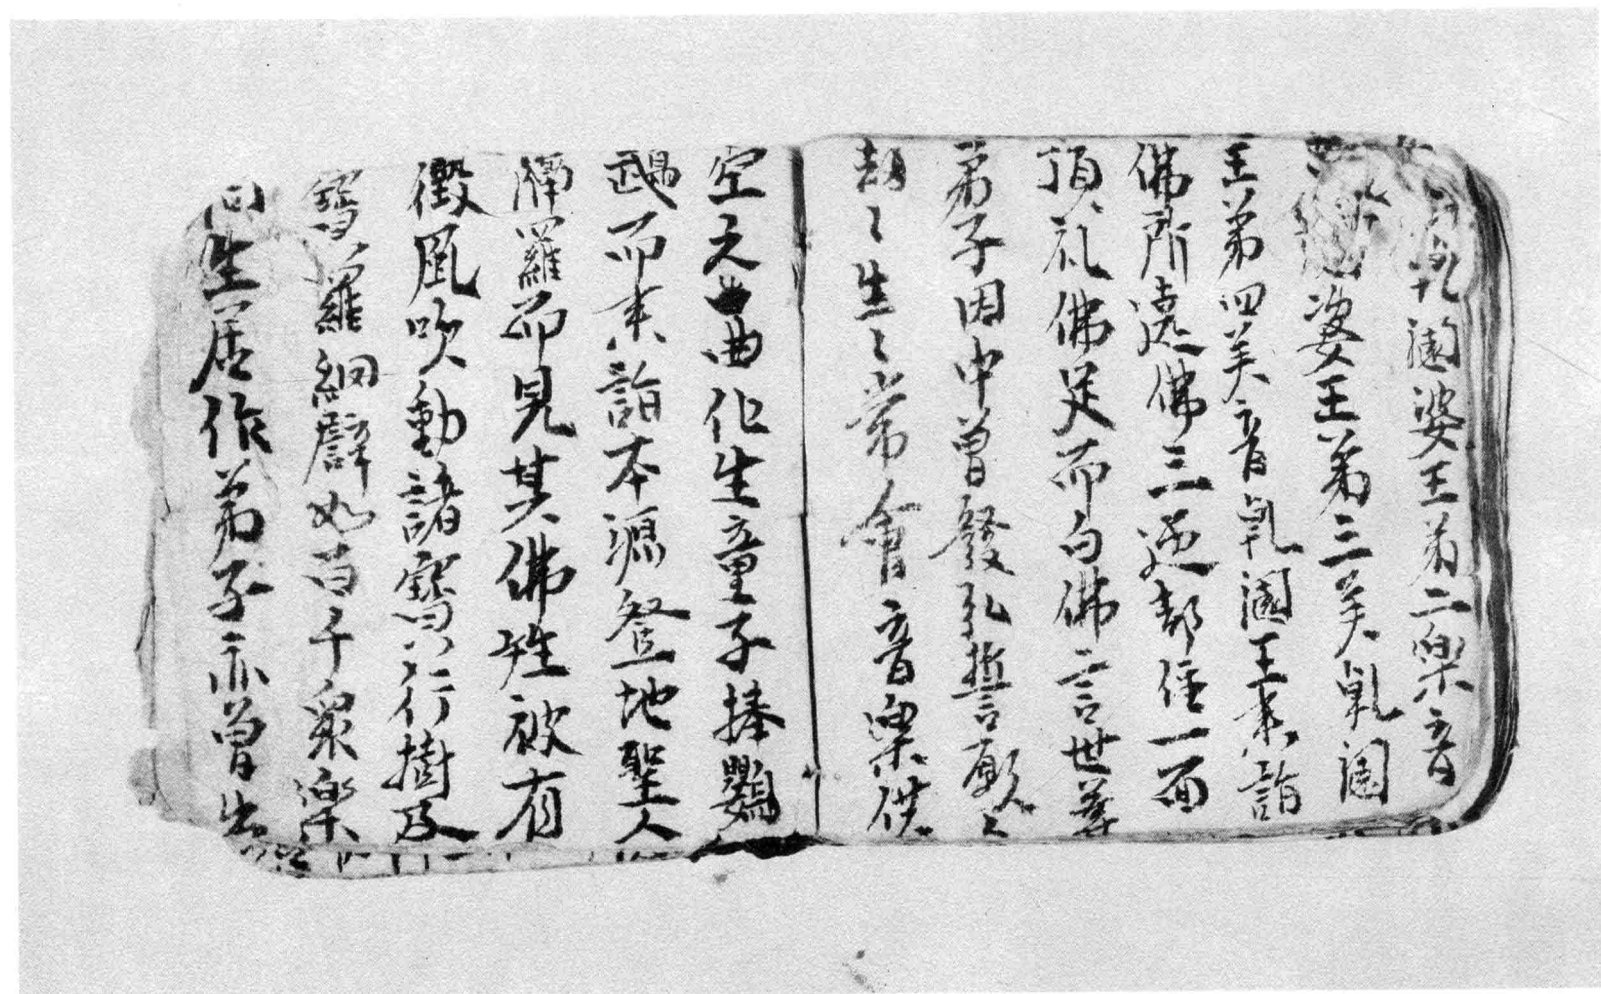 乹闥婆王第二樂音
婆王第三美乹闥
王第四美音乹闥王来詣
佛所遶佛三迊却住一面
頂礼佛足而白佛言世尊
弟子因中曽發弘誓願〻
劫〻生〻常會音樂供
空之曲化生童子捧鸚
鵡而来詣本源登地聖人
羅而見其佛性被有
微風吹動諸寳行樹及
寳羅網譬如百千衆樂
同生居作弟子亦曽出